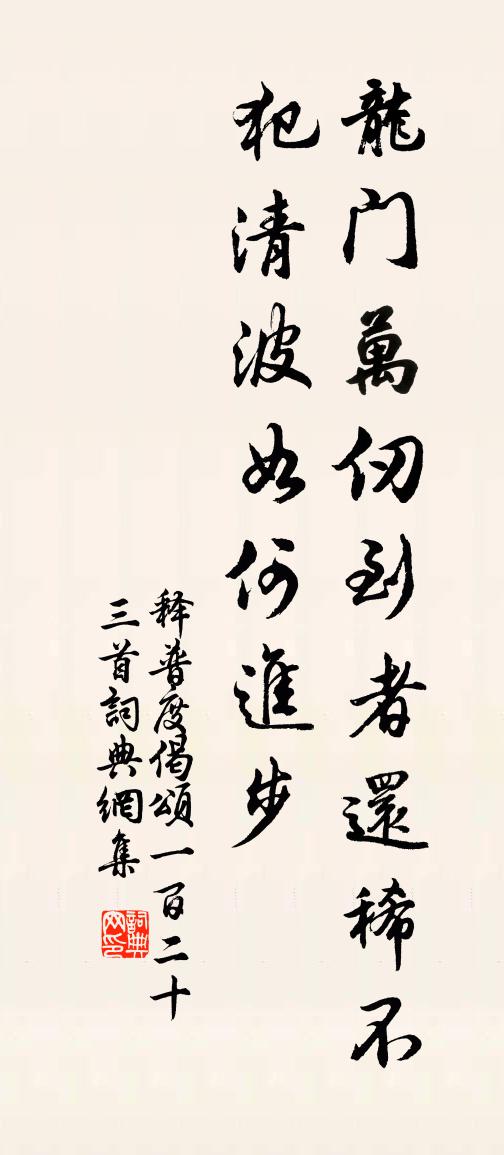 龍门萬仞到者還稀不
犯清波如何進步
释普度偈頌一百二十
三首詞典網集
詞典网印